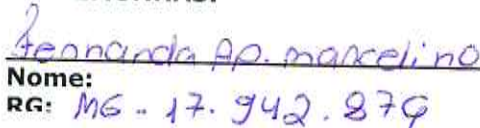 Fernanda Ap. marcelino
Nome:
RG: MG - 17. 942. 879